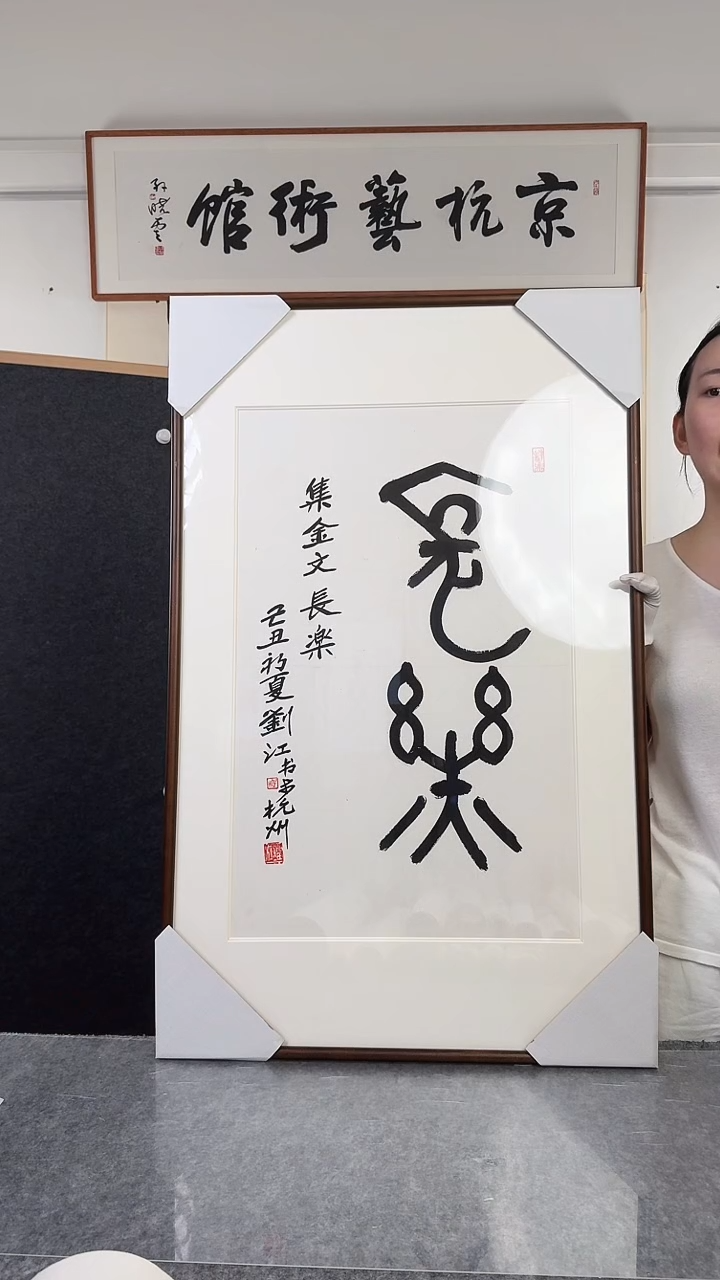 京杭藝術館
孙晓云
長樂
集金文 長楽
己丑初夏劉江书于杭州